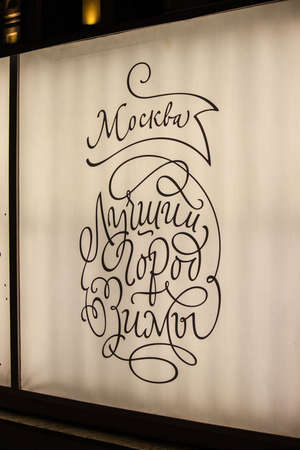 Москва
Лучший
Город
Зимы